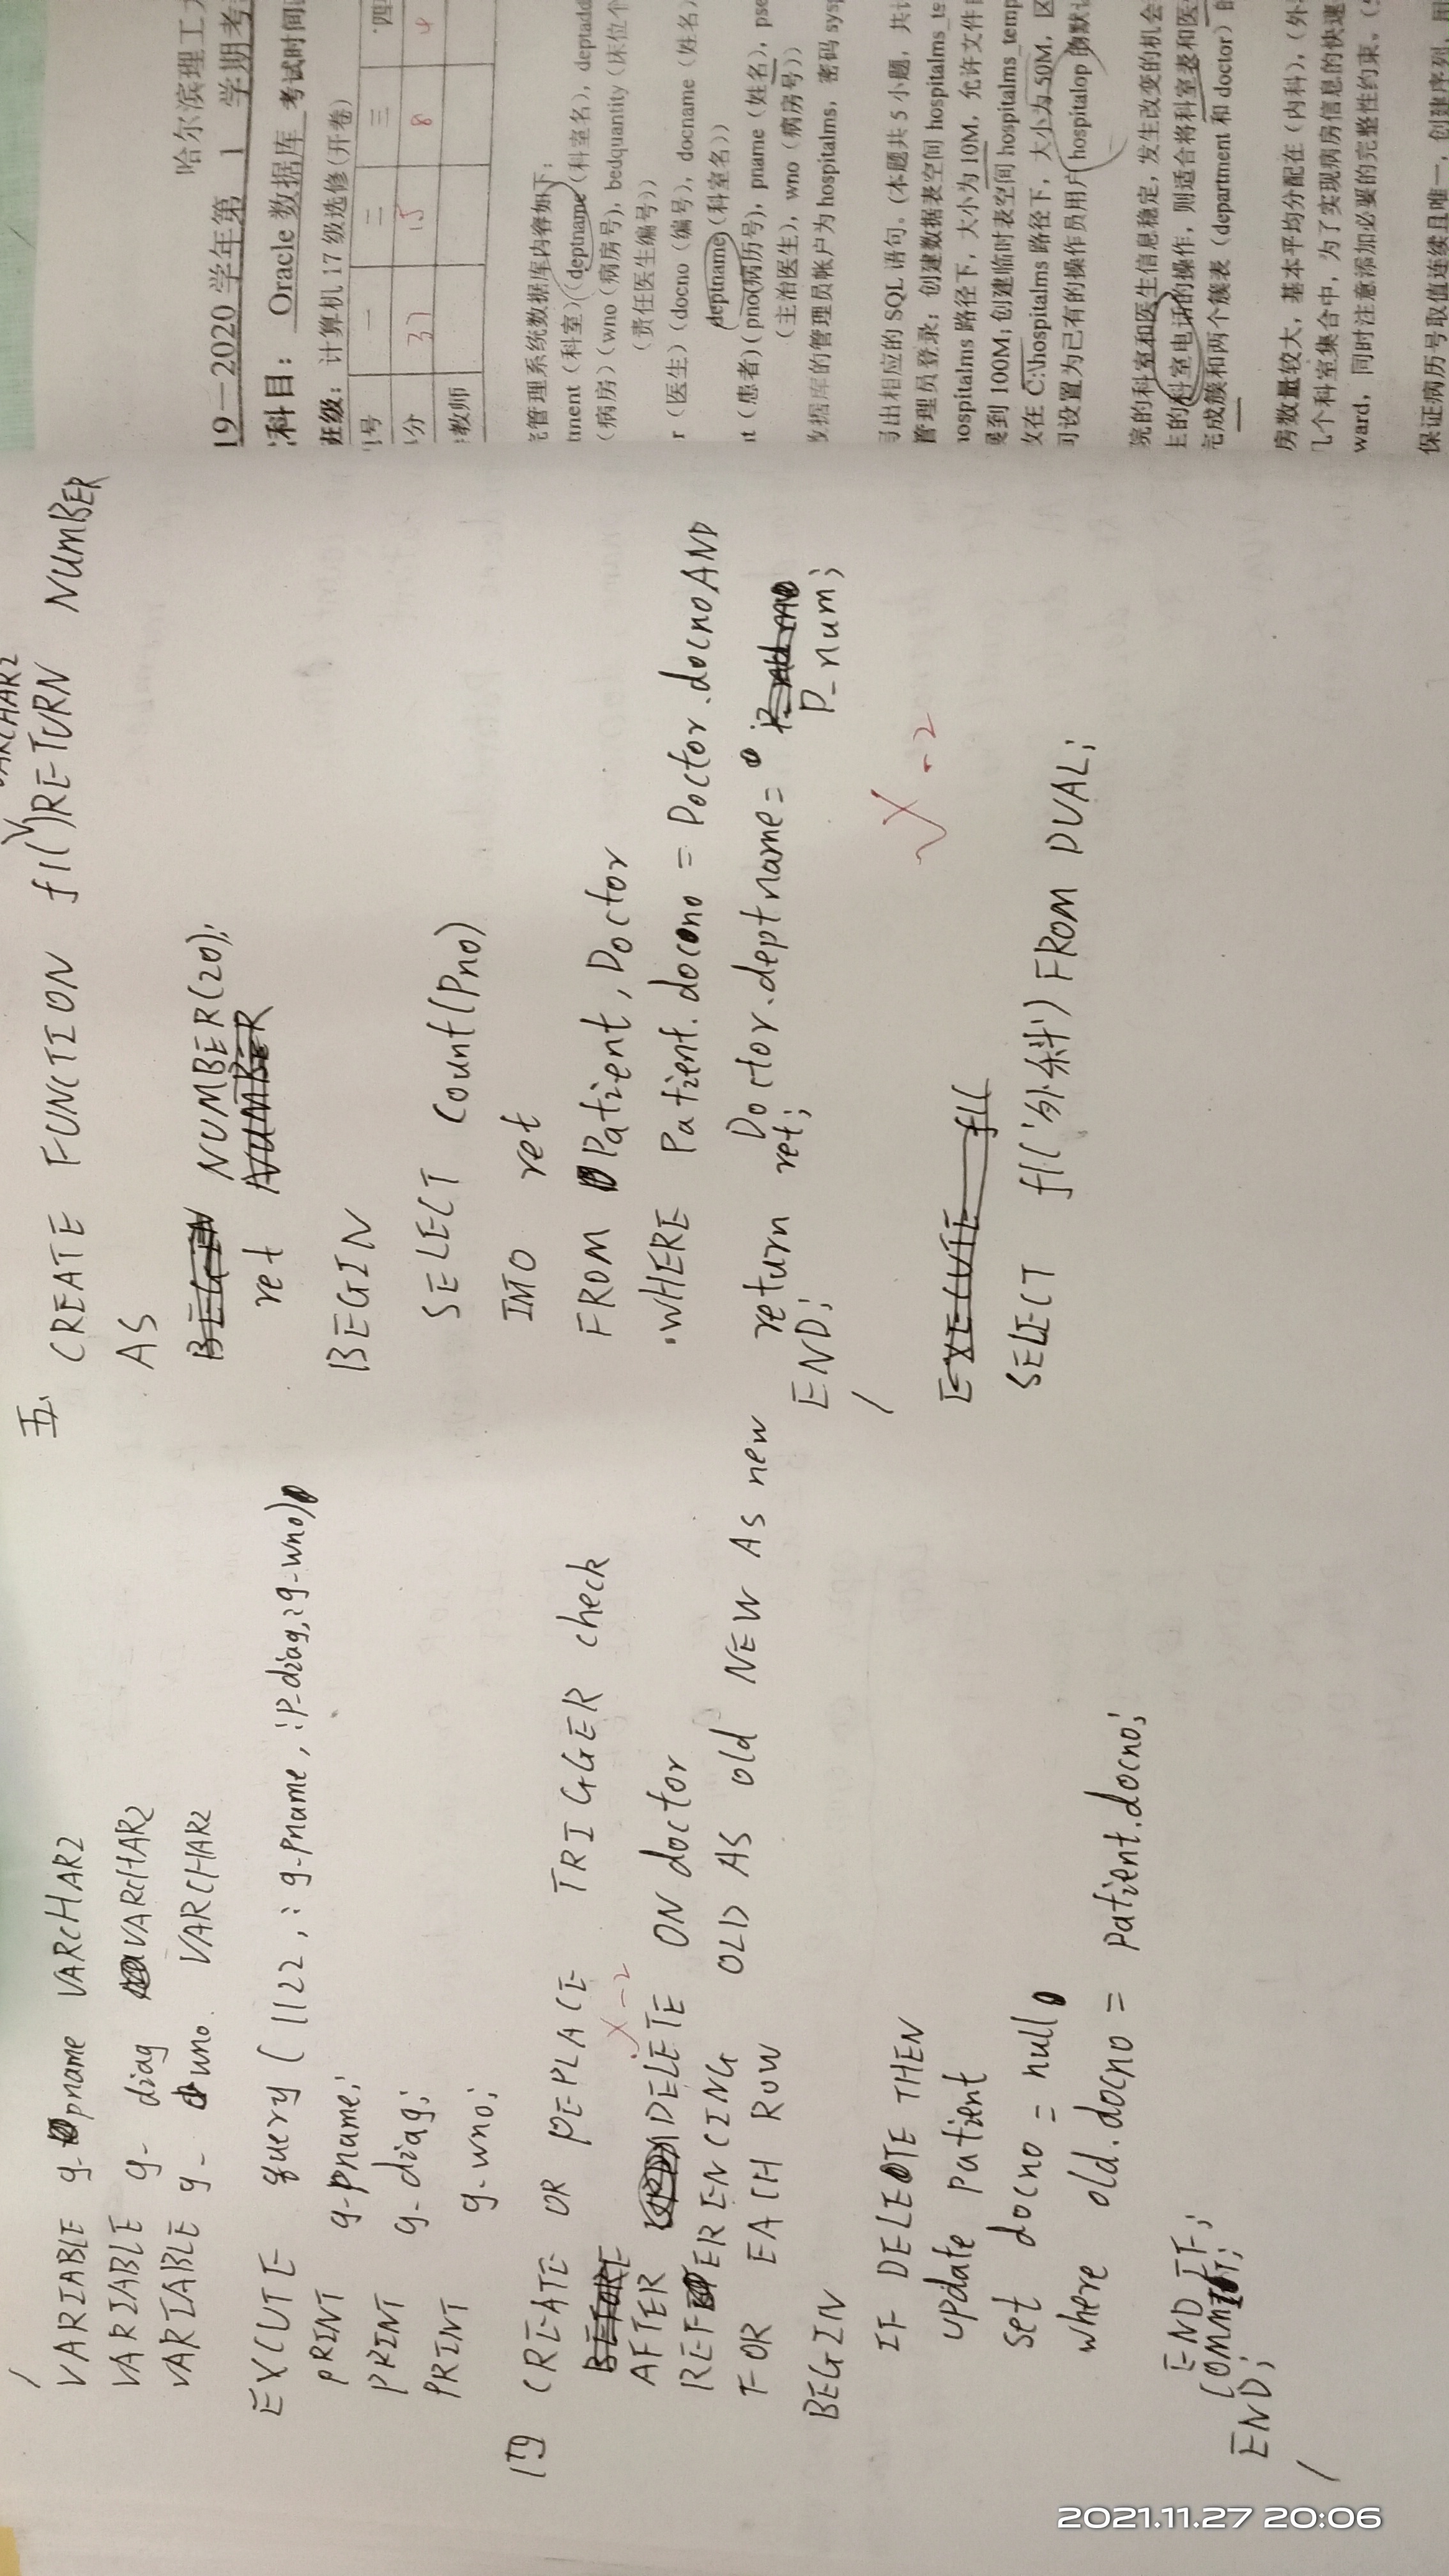 /
VARIABLE g_pname VARCHAR2
VARIABLE g_ diag VARCHAR2
VARIABLE g_ wno. VARCHAR2
EXCUTE query ( 1122, : g_pname, :p_diag, :g_wno)
PRINT g_pname;
PRINT g_diag;
PRINT g_wno;
四 CREATE OR PEPLACE TRIGGER check
BEFORE
X -2
AFTER DELETE ON doctor
REFERENCING OLD AS old NEW As new
FOR EACH ROW
BEGIN
IF DELETE THEN
update patient
set docno = null
where old.docno = patient.docno;
END IF;
COMMIT;
END;
/
VARCHAR2
五. CREATE FUNCTION f1( )RETURN NUMBER
AS
BEGIN NUMBER(20);
ret NUMBER
BEGIN
SELECT Count(Pno)
INTO ret
FROM Patient, Doctor
WHERE Patient.docno = Doctor.docno AND
Doctor.deptname =
return ret;
P_num;
END;
/
-2
EXECUTE f1(
SELECT f1('外科') FROM DUAL;
哈尔滨理工大
19－2020 学年第 1 学期考
科目： Oracle 数据库 考试时间
班级：计算机 17 级选修(开卷)
号 一 二 三 四
分 37 15 8 4
教师
管理系统数据库内容如下：
tment（科室）（deptname（科室名），deptadd
（病房）（wno（病房号），bedquantity（床位个
（责任医生编号））
r（医生）（docno（编号），docname（姓名）
deptname（科室名））
t（患者）（pno(病历号)，pname（姓名），pse
（主治医生），wno（病房号））
数据库的管理员帐户为 hospitalms，密码 sys
写出相应的 SQL 语句。(本题共 5 小题，共
管理员登录；创建数据表空间 hospitalms_te
hospitalms 路径下，大小为 10M，允许文件
展到 100M；创建临时表空间 hospitalms_temp
放在 C:\hospitalms 路径下，大小为 50M，区
间设置为已有的操作员用户 hospitalop 的默
院的科室和医生信息稳定，发生改变的机会
生的科室电话的操作，则适合将科室表和医
完成簇和两个簇表（department 和 doctor）
房数量较大，基本平均分配在（内科），（外
几个科室集合中，为了实现病房信息的快速
ward，同时注意添加必要的完整性约束。
保证病历号取值连续且唯一，创建序列，
2021.11.27 20:06